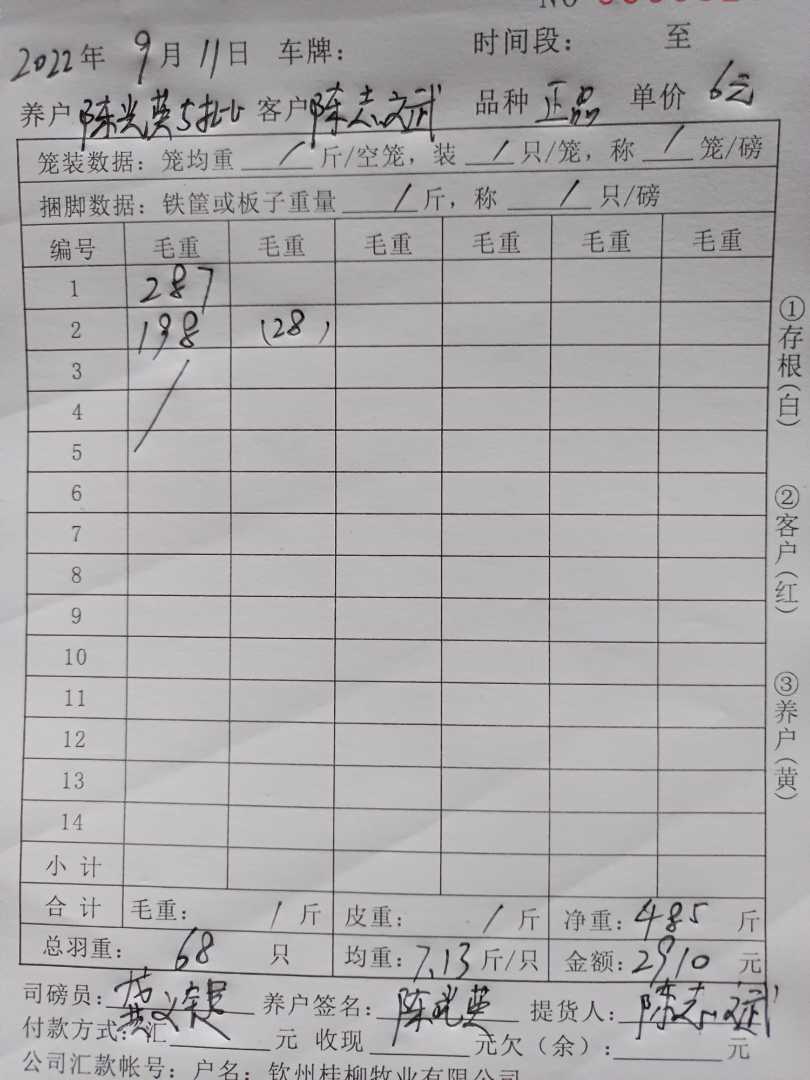 NO
2022年 9月 11日 车牌： 时间段： 至
养户 陈光英5批 客户 陈志斌 品种 正品 单价 6元
笼装数据：笼均重 / 斤/空笼，装 / 只/笼，称 / 笼/磅
捆脚数据：铁筐或板子重量 / 斤，称 / 只/磅
编号 毛重 毛重 毛重 毛重 毛重 毛重
1 287
2 198 (28)
3
4
5
6
7
8
9
10
11
12
13
14
小计
合计 毛重： / 斤 皮重： / 斤 净重：485 斤
总羽重： 68 只 均重：7.13 斤/只 金额：2910 元
司磅员： 养户签名：陈光英 提货人：陈志斌
付款方式：汇 元 收现 元欠（余）： 元
公司汇款帐号：户名：钦州桂柳牧业有限公司
①存根（白）
②客户（红）
③养户（黄）